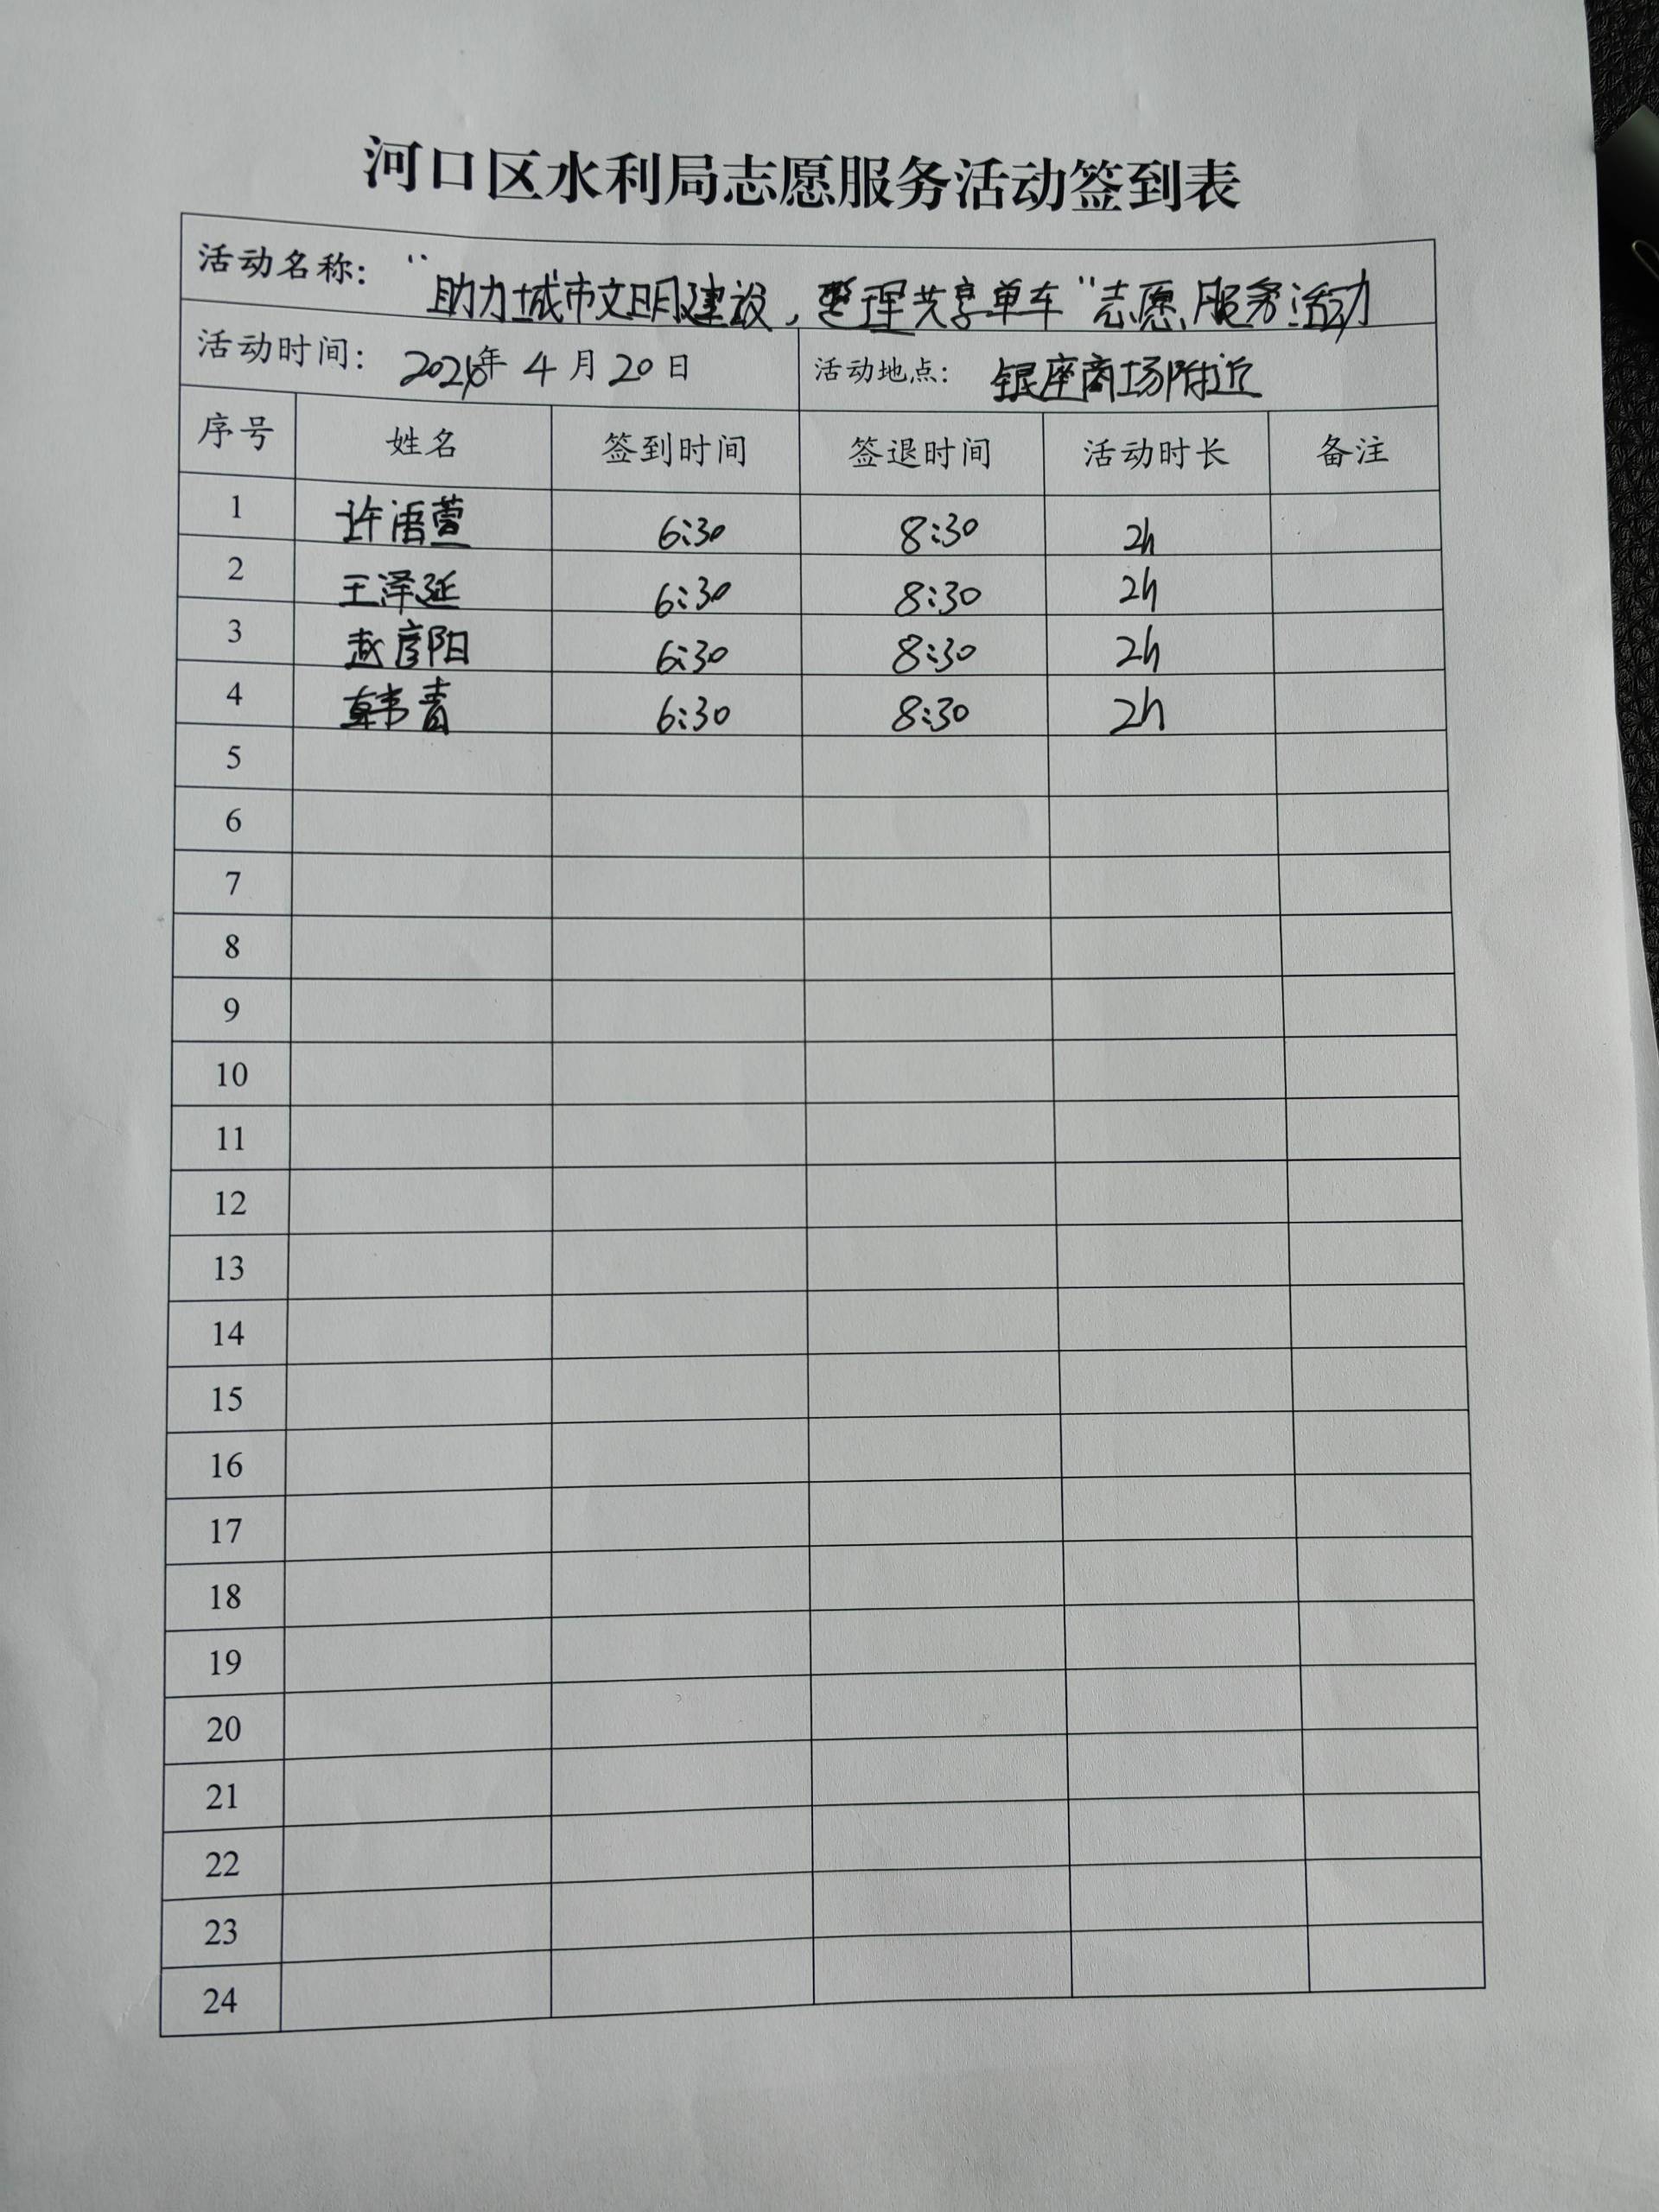 河口区水利局志愿服务活动签到表
活动名称："助力城市文明建设，整理共享单车"志愿服务活动
活动时间：年 4 月 20 日 活动地点：银座商场附近
序号 姓名 签到时间 签退时间 活动时长 备注
1 许语萱 6:30 8:30 2h
2 王泽延 6:30 8:30 2h
3 赵彦阳 6:30 8:30 2h
4 韩青 6:30 8:30 2h
5
6
7
8
9
10
11
12
13
14
15
16
17
18
19
20
21
22
23
24